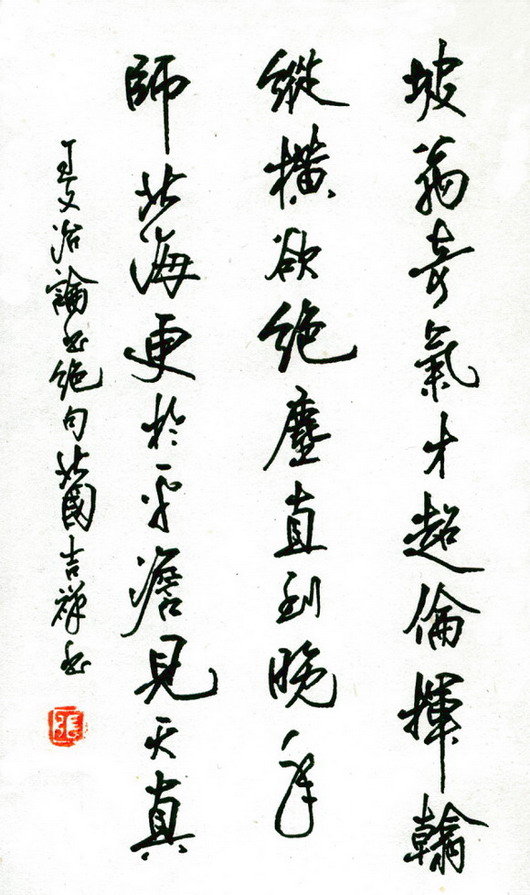 坡翁奇氣才超倫揮翰
縱橫欲絕塵直到晚年
師北海更於平澹見天真
王文治論書絕句北國吉祥書
張